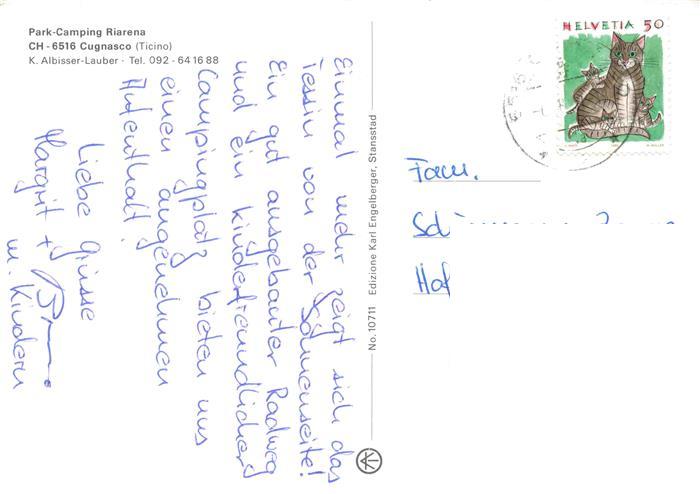 Park-Camping Riarena
CH - 6516 Cugnasco (Ticino)
K. Albisser-Lauber · Tel. 092 - 64 16 88
Einmal mehr zeigt sich das
Tessin von der Sonnenseite!
Ein gut ausgebauter Radweg
und ein kinderfreundlicher
Campingplatz bieten uns
einen angenehmen
Aufenthalt.
Liebe Grüsse
Margrit +
m. Kindern
No. 10711 Edizione Karl Engelberger, Stansstad
HELVETIA 50
Fam.
Hof